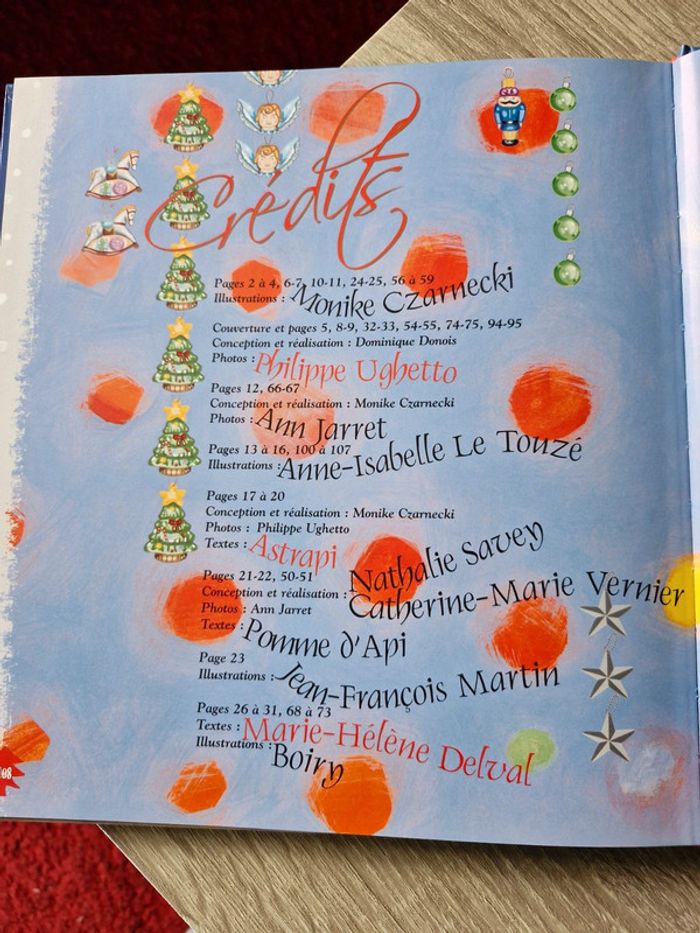 Crédits
Pages 2 à 4, 6-7, 10-11, 24-25, 56 à 59
Illustrations : Monike Czarnecki
Couverture et pages 5, 8-9, 32-33, 54-55, 74-75, 94-95
Conception et réalisation : Dominique Donois
Photos : Philippe Ughetto
Pages 12, 66-67
Conception et réalisation : Monike Czarnecki
Photos : Ann Jarret
Pages 13 à 16, 100 à 107
Illustrations : Anne-Isabelle Le Touzé
Pages 17 à 20
Conception et réalisation : Monike Czarnecki
Photos : Philippe Ughetto
Textes : Astrapi
Pages 21-22, 50-51
Conception et réalisation : Nathalie Savey
Catherine-Marie Vernier
Photos : Ann Jarret
Textes : Pomme d'Api
Page 23
Illustrations : Jean-François Martin
Pages 26 à 31, 68 à 73
Textes : Marie-Hélène Delval
Illustrations : Boiry
108